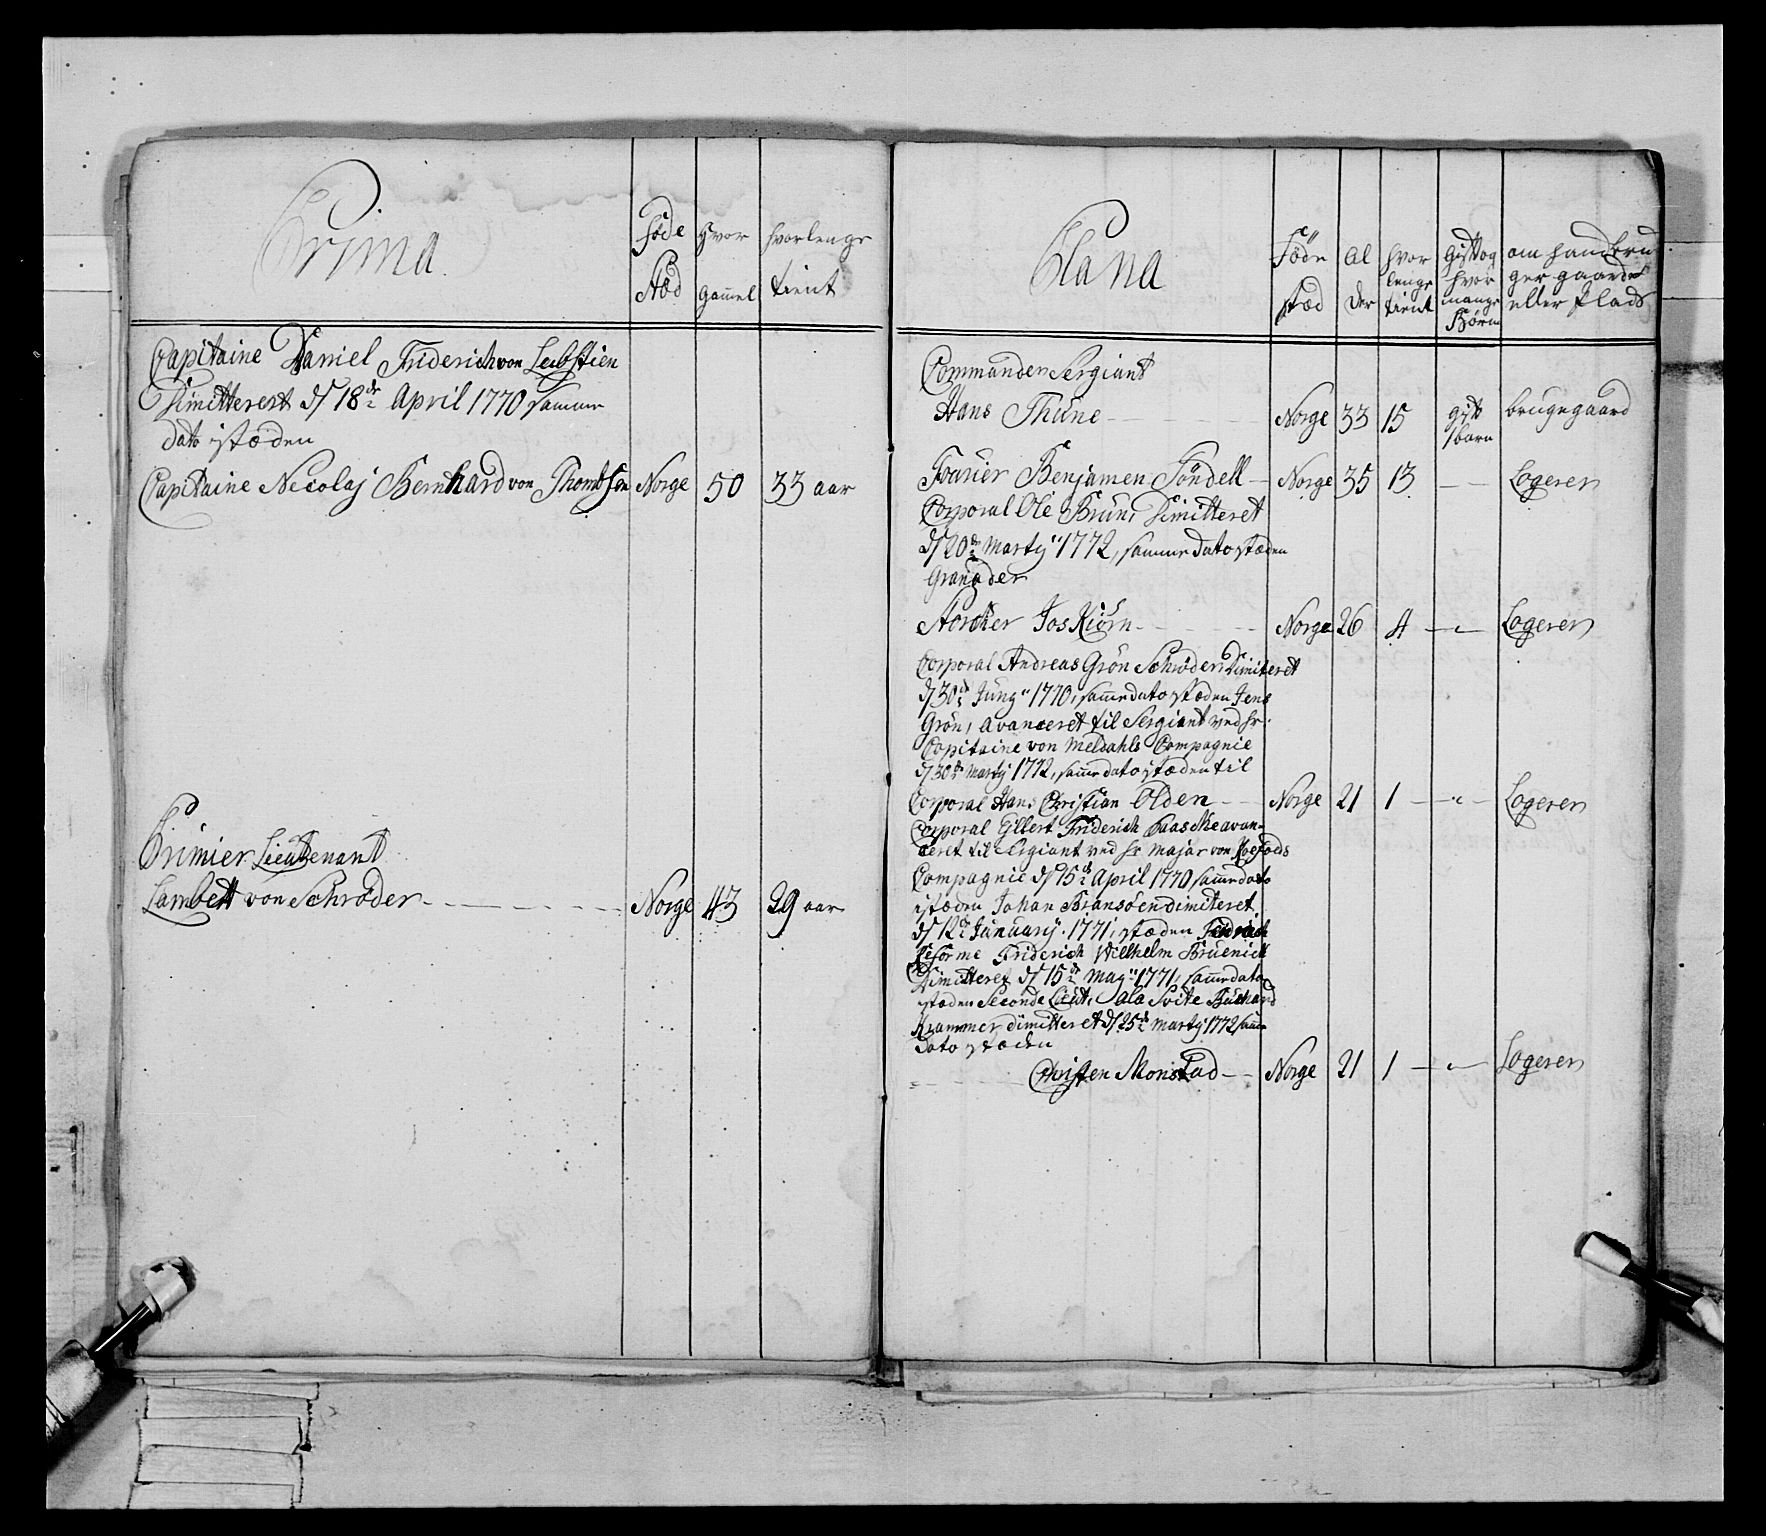 Prima
Føde Stæd
Hvor gammel
hvorlenge tient
Capitaine Daniel Friderich von Leibstien
Dimitterest d/ 18de April 1770 samme
dato i stæden
Capitaine Necolaj Bernhard von Thombsen Norge 50 33 aar
Primier Lieutenant
Lambett von Schrøder Norge 43 29 aar
Plana
Føde stæd
Alder
hvor lenge tient
Gift og hvor mange Børn
om hand bruger gaarder eller Plads
Commander Sergiant
Hans Thüne Norge 33 15 gift 1 barn brugegaard
Fourier Benjamen Töndell Norge 35 13 Logerer
Corporal Ole Brun, Dimitteret
d/ 20de Martÿ 1772, samme dato i stæden
Granader
Störcher Jos Kiörn Norge 26 4 Logerer
Corporal Andreas Grön Schrøder, Dimiteret
d/ 30de Junÿ 1770, samme dato i stæden Jens
Grön, avanceret til Sergiant ved hr.
Capitaine von Meldahls Compagnie
d/ 30de Martÿ 1772, samme dato i stæden til
Corporal Hans Christian Olden Norge 21 1 Logerer
Corporal Ellert Friderich Baaschke avan-
ceret til Sergiant ved hr Majar von Koefods
Compagnie d/ 15de April 1770 samme dato
i stæden Johan Bransøen dimiteret
d/ 12te Januarÿ 1771, i stæden
Reforme Friderich Willhelm Bruenich
Dimitteret d/ 15de Maÿ 1771, samme dato
i stæden Seconde Lieut. Ala Svite Buchard
Krammer dimitteret d/ 25de Martÿ 1772 samme
dato i stæden
Christen Monstad Norge 21 1 Logerer